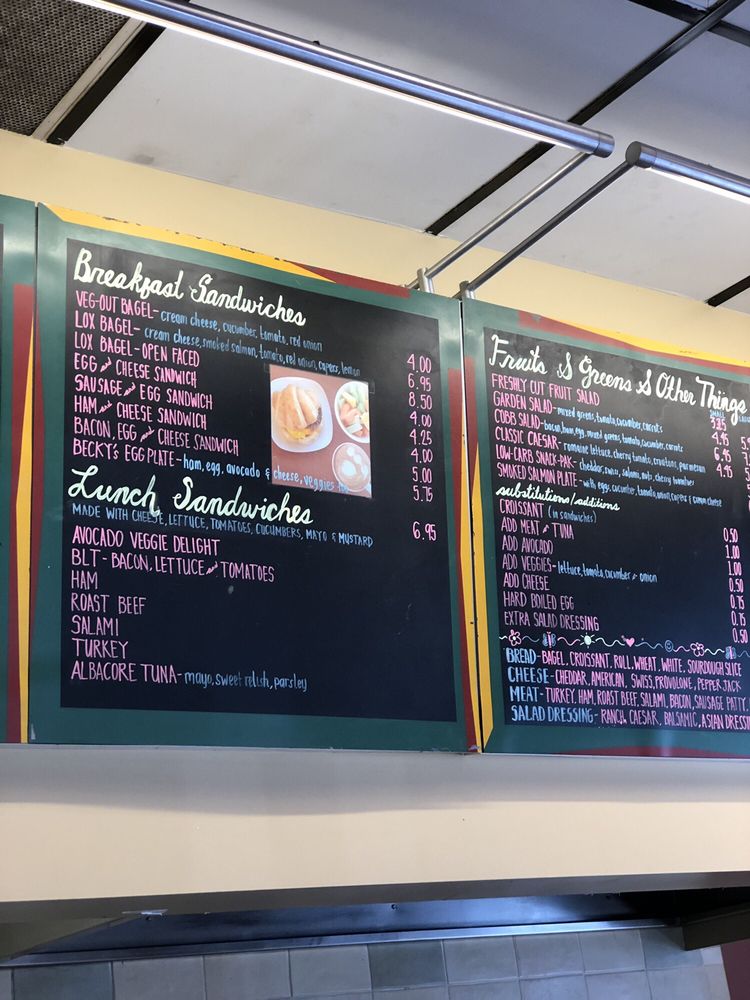 Breakfast Sandwiches
VEG-OUT BAGEL- cream cheese, cucumber, tomato, red onion 4.00
LOX BAGEL- cream cheese, smoked salmon, tomato, red onion, capers, lemon 6.95
LOX BAGEL-OPEN FACED 8.50
EGG and CHEESE SANDWICH 4.00
SAUSAGE and EGG SANDWICH 4.25
HAM and CHEESE SANDWICH 4.00
BACON, EGG and CHEESE SANDWICH 5.00
BECKY'S EGG PLATE- ham, egg, avocado & cheese, veggies 5.75
Lunch Sandwiches 6.95
MADE WITH CHEESE, LETTUCE, TOMATOES, CUCUMBERS, MAYO & MUSTARD
AVOCADO VEGGIE DELIGHT
BLT- BACON, LETTUCE and TOMATOES
HAM
ROAST BEEF
SALAMI
TURKEY
ALBACORE TUNA- mayo, sweet relish, parsley
Fruits & Greens & Other Things
SMALL
FRESHLY CUT FRUIT SALAD
GARDEN SALAD- mixed greens, tomato, cucumber, carrots
COBB SALAD- bacon, ham, egg, mixed greens, tomato, cucumber, carrots
CLASSIC CAESAR- romaine lettuce, cherry tomato, croutons, parmesan
LOW-CARB SNACK-PAK- cheddar, swiss, salami, nuts, cherry tomatoes
SMOKED SALMON PLATE- with eggs, cucumber, tomato, onion, capers & cream cheese
substitutions/additions
CROISSANT (in sandwiches) 0.50
ADD MEAT & TUNA 1.00
ADD AVOCADO 1.00
ADD VEGGIES- lettuce, tomato, cucumber or onion 0.50
ADD CHEESE 0.75
HARD BOILED EGG 0.75
EXTRA SALAD DRESSING 0.50
BREAD- BAGEL, CROISSANT, ROLL, WHEAT, WHITE, SOURDOUGH SLICE
CHEESE- CHEDDAR, AMERICAN, SWISS, PROVOLONE, PEPPER JACK
MEAT- TURKEY, HAM, ROAST BEEF, SALAMI, BACON, SAUSAGE PATTY,
SALAD DRESSING- RANCH, CAESAR, BALSAMIC, ASIAN